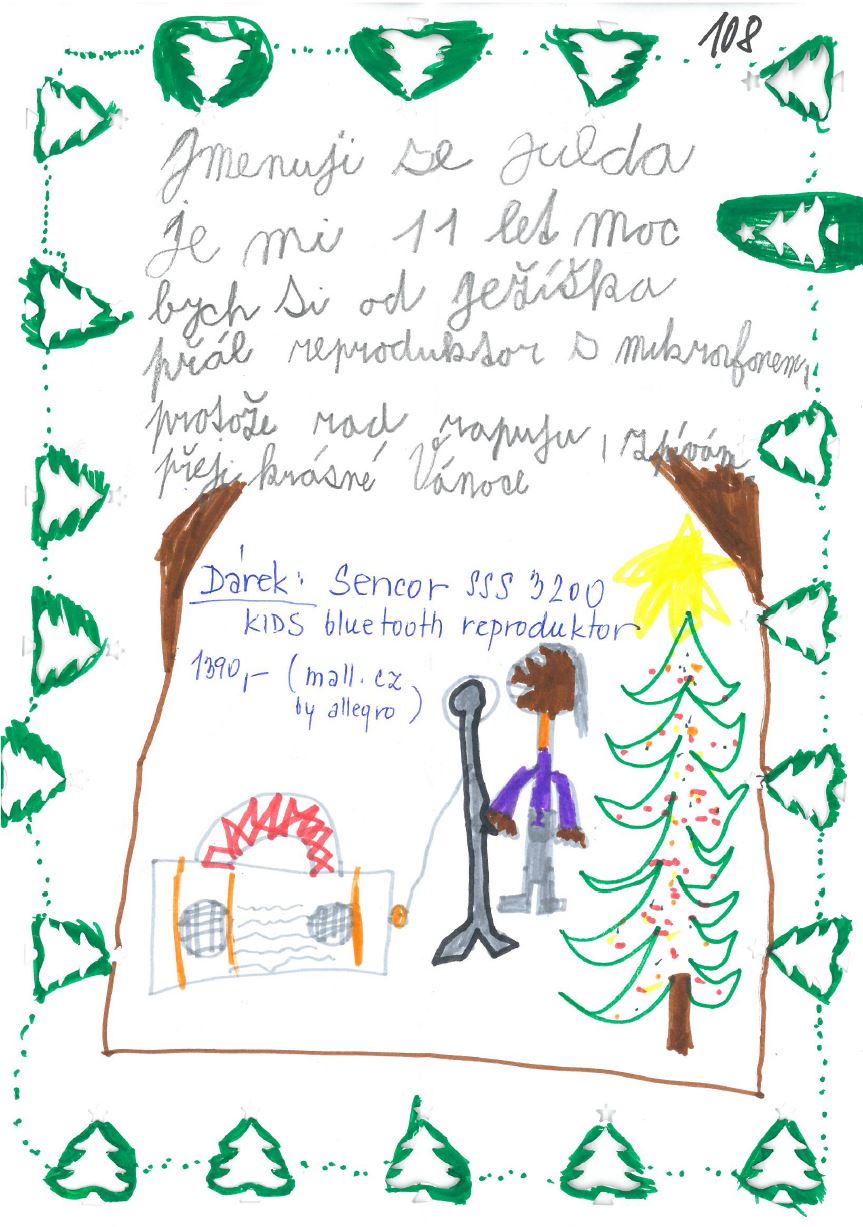 108
Jmenuji se Julda
je mi 11 let moc
bych si od Ježíška
přál reproduktor s mikrofonem,
protože rad rapuju, zpívám
přeji krásné Vánoce
Dárek: Sencor SSS 3200
KIDS bluetooth reproduktor
1390,- (mall.cz
by allegro)